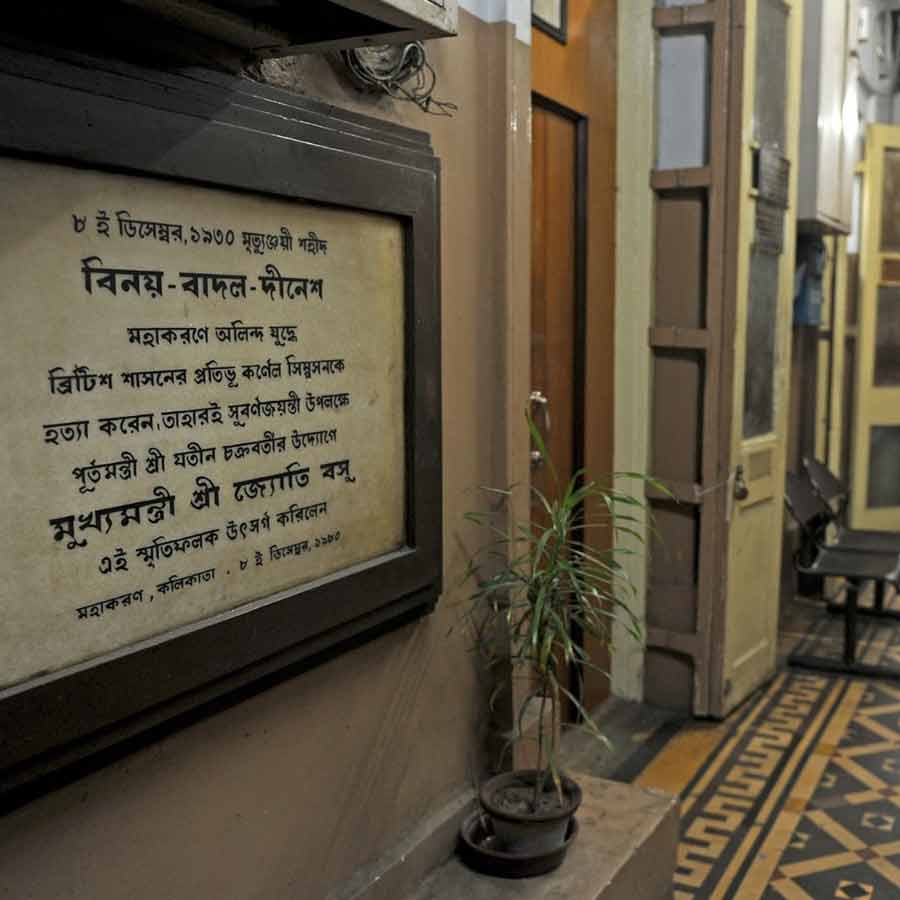 ৮ ই ডিসেম্বর, ১৯৩০ মৃত্যুঞ্জয়ী শহীদ
বিনয়-বাদল-দীনেশ
মহাকরণে অলিন্দ যুদ্ধে
ব্রিটিশ শাসনের প্রতিভূ কর্ণেল সিম্বসনকে
হত্যা করেন, তাহারই সুবর্ণজয়ন্তী উপলক্ষে
পূর্তমন্ত্রী শ্রী যতীন চক্রবর্তীর উদ্যোগে
মুখ্যমন্ত্রী শ্রী জ্যোতি বসু
এই স্মৃতিফলক উৎসর্গ করিলেন
মহাকরণ, কলিকাতা . ৮ ই ডিসেম্বর, ১৯৮০